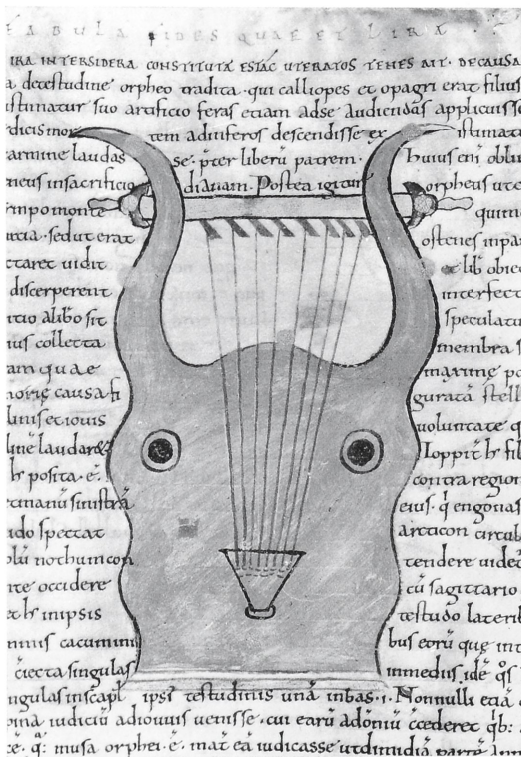 FABULA FIDES QUAE ET LIRA
IRA INTER SIDERA CONSTITUTA EST HAC UT ERATOSTENES AIT. DE CAUSA
a detestudine orpheo tradita. qui calliopes et opagri erat filius
istimatur suo artificio feras etiam adse audiendas applicuisse
tem adinferos descendisse ex istimatur
armine laudas se. pter liberū patrem. Huius eni obli
neus insacrificio dianam. Postea igitur orpheus ute
inpo monte quim
urcia. sedut erat ostenes inpa
ctaret uidit et lib obie
discerperent interfect
itio alibo sit speculatu
ius collecta membra s
am quae maxime po
moris causa fi gurata stell
linis et iouis uoluntate q
line laudare Ioppit h fil
h posita. ē. contra region
etmanū sinistrā eius. q engonas
udo spectat arcticon circul
olū nothum con tendere uidet
nte occidere cū sagittario
et h inipsis testudo laterib
mnis cacumini bus eorū que int
ciecta singulas inmediis. idē qs
ngulas inscapl ipsi testudinis unā inbas. i. Nonnulli etiā
pina iudiciū adiouis uenisse. cui earū adoniū ccederet qb:
cē. q: musa orphei. ē. mat eā iudicasse utdimidiā partē ann